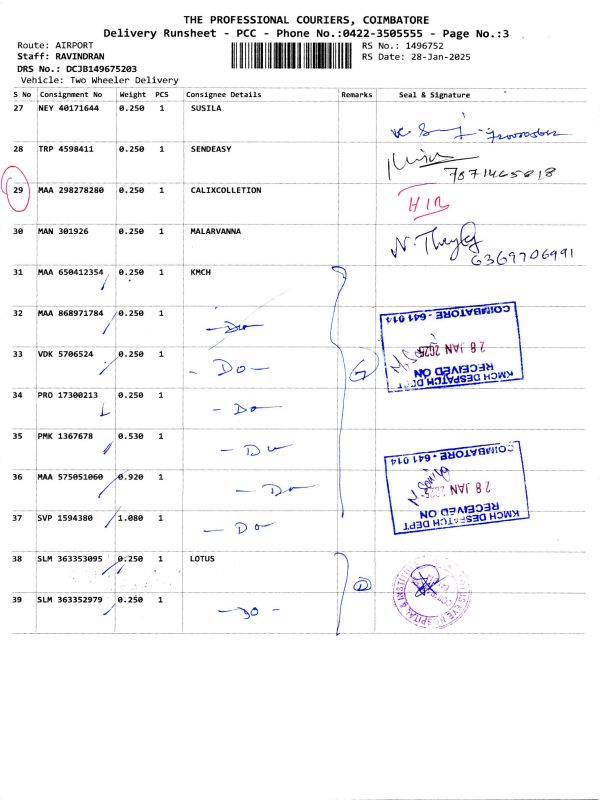 THE PROFESSIONAL COURIERS, COIMBATORE
Delivery Runsheet - PCC - Phone No.:0422-3505555 - Page No.:3
Route: AIRPORT
RS No.: 1496752
Staff: RAVINDRAN
RS Date: 28-Jan-2025
DRS No.: DCJB149675203
Vehicle: Two Wheeler Delivery
S No Consignment No Weight PCS Consignee Details Remarks Seal & Signature
27 NEY 40171644 0.250 1 SUSILA
28 TRP 4598411 0.250 1 SENDEASY
7871465818
29 MAA 298278280 0.250 1 CALIXCOLLETION
30 MAN 301926 0.250 1 MALARVANNA
6369706991
31 MAA 650412354 0.250 1 KMCH
32 MAA 868971784 0.250 1 - Do -
33 VDK 5706524 0.250 1 - Do -
34 PRO 17300213 0.250 1 - Do -
35 PMK 1367678 0.530 1 - Do -
36 MAA 575051060 0.920 1 - Do -
37 SVP 1594380 1.080 1 - Do -
7
KMCH DESPATCH DEPT
RECEIVED ON
28 JAN 2025
COIMBATORE - 641 014
KMCH DESPATCH DEPT
RECEIVED ON
28 JAN 2025
COIMBATORE - 641 014
38 SLM 363353095 0.250 1 LOTUS
39 SLM 363352979 0.250 1 - Do -
LOTUS EYE HOSPITAL & INSTITUTE